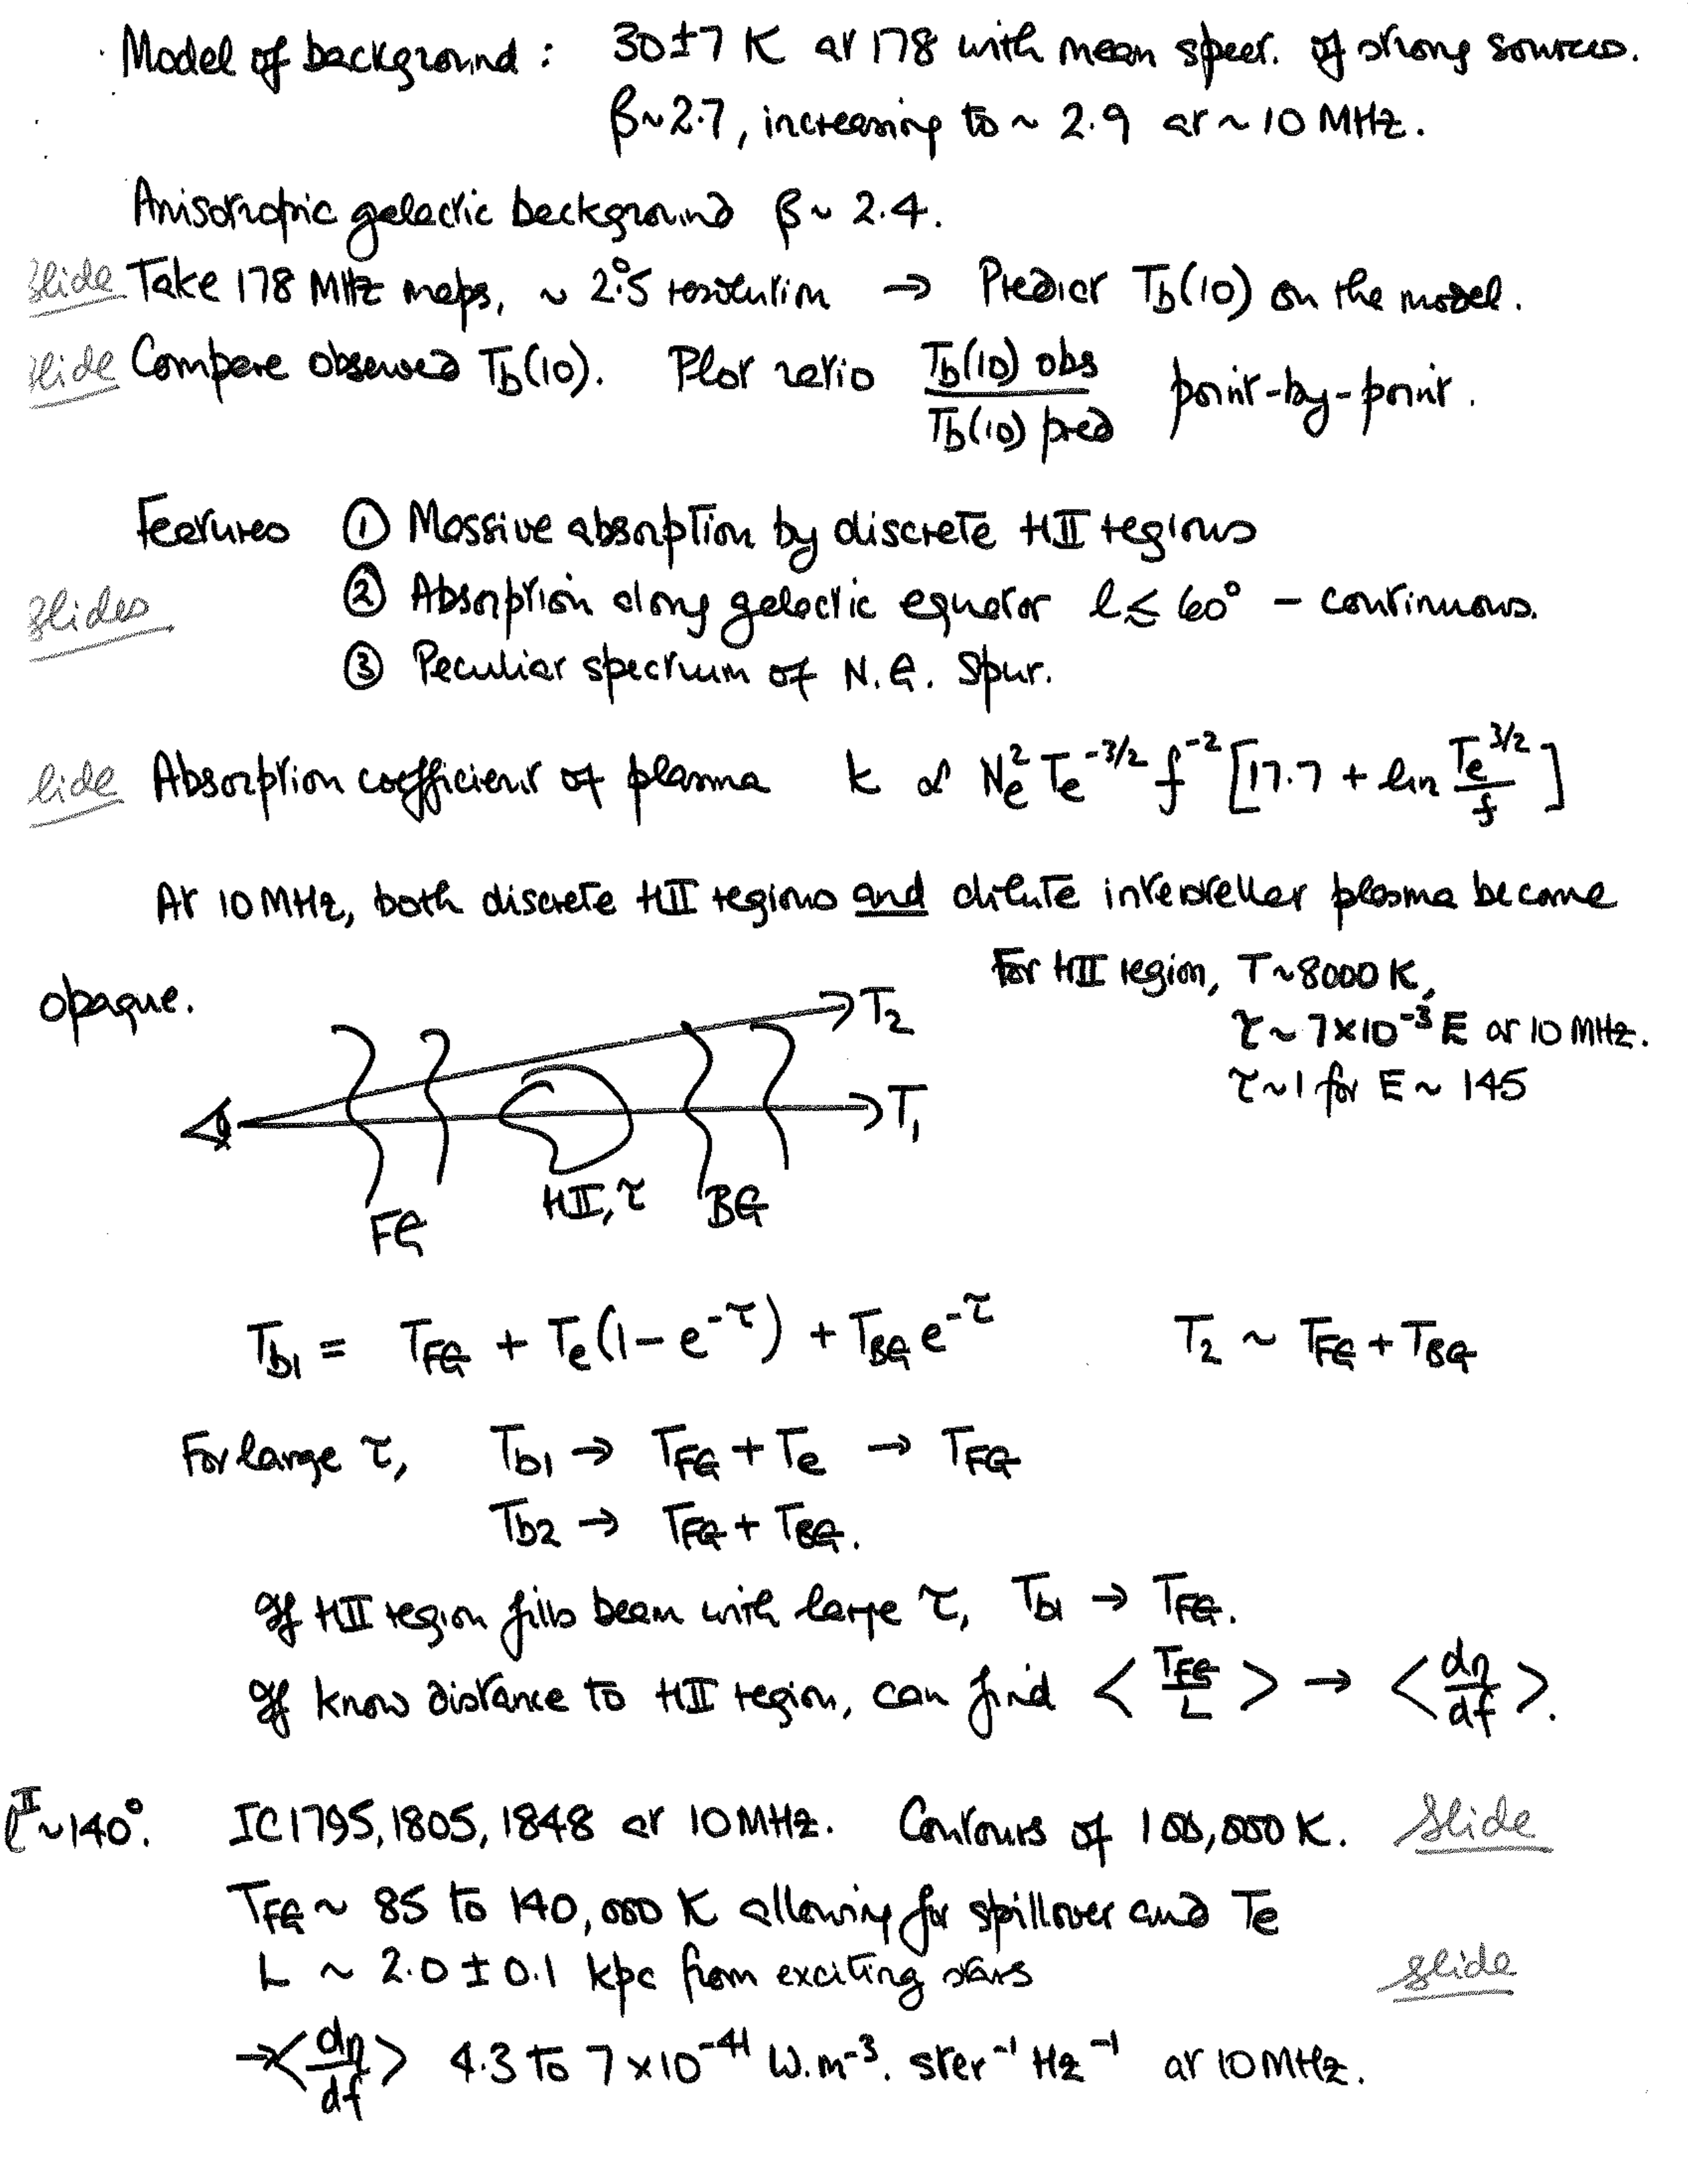 Model of background : 30±7 K at 178 with mean spec. of strong sources.
β~2.7, increasing to ~ 2.9 at ~ 10 MHz.
Anisotropic galactic background β ~ 2.4.
Slide Take 178 MHz maps, ~ 2°.5 resolution → Predict T_b(10) on the model.
Slide Compare observed T_b(10). Plot ratio T_b(10) obs / T_b(10) pred point-by-point.
Features ① Massive absorption by discrete HII regions
② Absorption along galactic equator l ≲ 60° – continuous.
Slides
③ Peculiar spectrum of N.G. Spur.
lide Absorption coefficient of plasma k ∝ N_e^2 T_e^{-3/2} f^{-2} [17.7 + ln T_e^{3/2}/f]
At 10 MHz, both discrete HII regions and dilute interstellar plasma become
opaque.
For HII region, T ~ 8000 K,
τ ~ 7×10^{-3} E at 10 MHz.
τ ~ 1 for E ~ 145
T_2
T_1
FG
HII, τ
BG
T_b1 = T_FG + T_e(1 – e^{-τ}) + T_BG e^{-τ} T_2 ~ T_FG + T_BG
For large τ, T_b1 → T_FG + T_e → T_FG
T_b2 → T_FG + T_BG.
If HII region fills beam with large τ, T_b1 → T_FG.
If know distance to HII region, can find < T_FG/L > → < dη/df >.
l^II ~ 140°. IC1795, 1805, 1848 at 10 MHz. Contours of 100,000 K. Slide
T_FG ~ 85 to 140,000 K allowing for spillover and T_e
L ~ 2.0 ± 0.1 kpc from exciting stars
slide
→ < dη/df > 4.3 to 7 × 10^{-41} W.m^{-3}. ster^{-1} Hz^{-1} at 10 MHz.